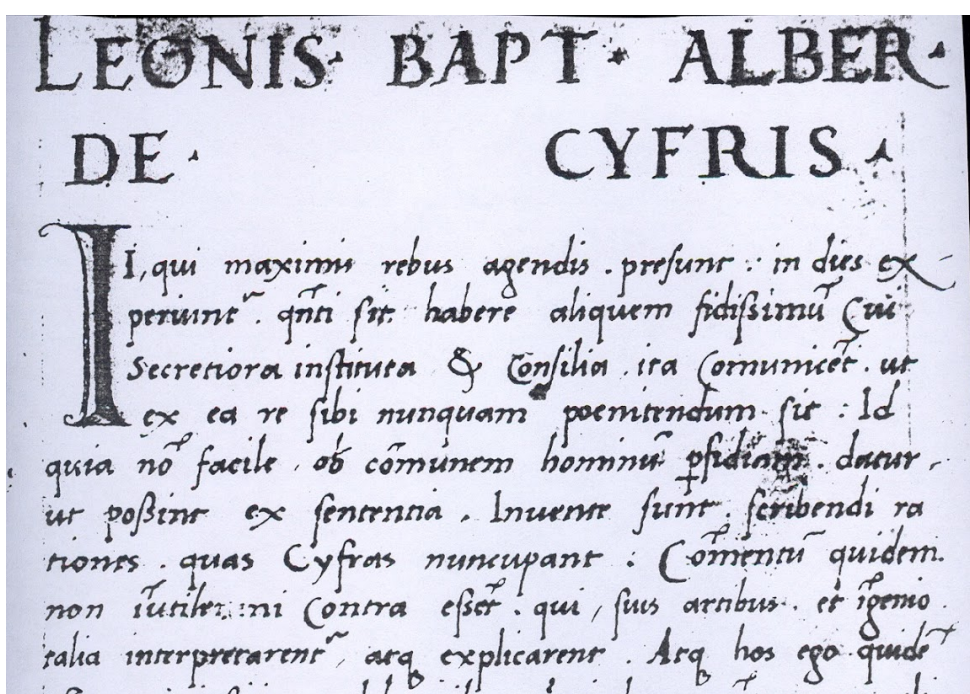 LEONIS · BAPT · ALBER ·
DE · CYFRIS ·
II, qui maximis rebus agendis . presunt : in dies ex
periunt᷑ . qñti sit habere aliquem fidissimū Cui
Secretiora instituta & Consilia ita Comunicēt . ut
ex ea re sibi nunquam poenitendum sit : Id
quia nō facile . ob cōmunem hominū ꝑfidiam . datur ,
ut possint ex sententia . Inuente sunt . scribendi ra
tiones . quas Cyfras nuncupant : Cōmentū quidem .
non īutile: ni Contra essēt . qui , suis artibus . et īgenio
talia interpretarent᷑ , atq explicarent . Atq hos ego quidē